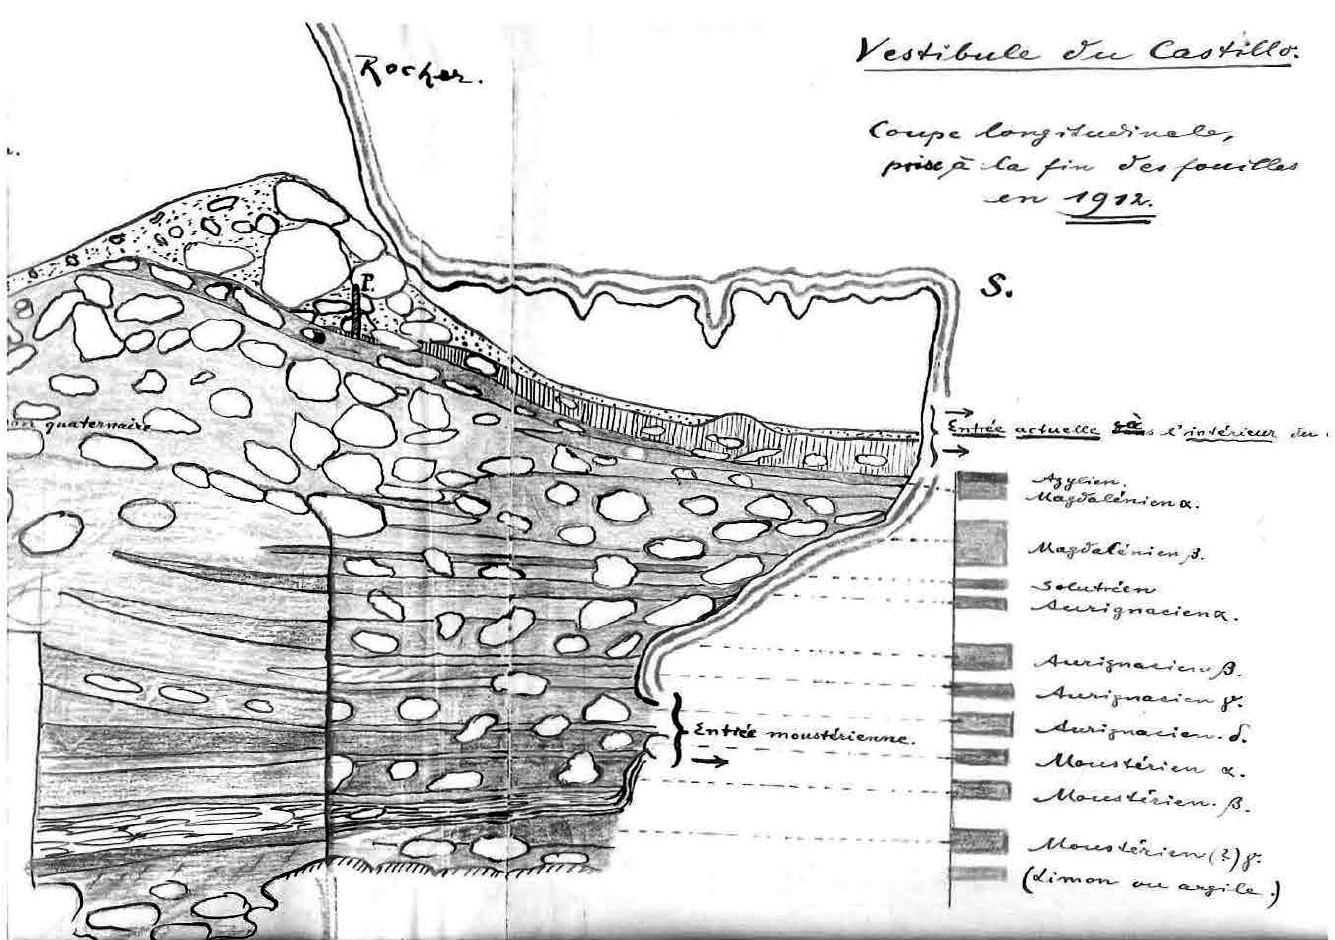 Rocher.
Vestibule du Castillo.
Coupe longitudinale,
prise à la fin des fouilles
en 1912.
P.
S.
quaternaire
Entrée actuelle l'intérieur du
Azylien.
Magdalénien α.
Magdalénien β.
Solutréen
Aurignacien α.
Aurignacien β.
Aurignacien γ.
Aurignacien δ.
Entrée moustérienne.
Moustérien α.
Moustérien β.
Moustérien (?) γ.
(Limon ou argile.)